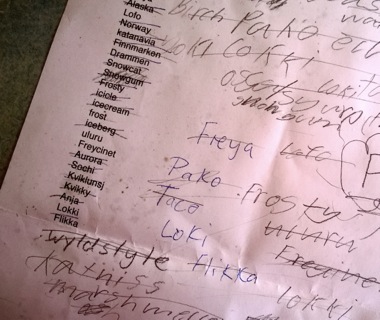 Alaska
Lofo
Norway
katanavia
Finnmarken
Drammen
Snowcat
Snowgum
Frosty
Icicle
Icecream
frost
Iceberg
uluru
Freycinet
Aurora
Sochi
Kviklunsj
Kvikky
Anja
Lokki
Flikka
wyldstyle
katniss
Birch Pako
LOKI LOKKI
Loki
snowgum
Freya Lofo
Pako Frosty
Taco uluru
Loki Freycine
Flikka Lokki